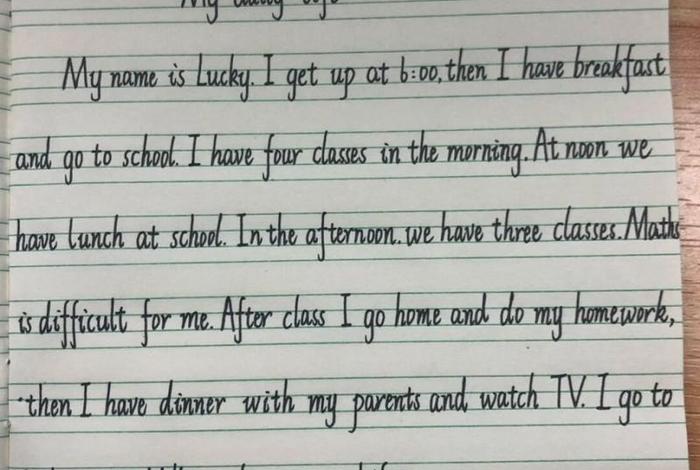 My daily life
My name is Lucky. I get up at 6:00, then I have breakfast
and go to school. I have four classes in the morning. At noon we
have lunch at school. In the afternoon. we have three classes. Maths
is difficult for me. After class I go home and do my homework,
then I have dinner with my parents and watch TV. I go to